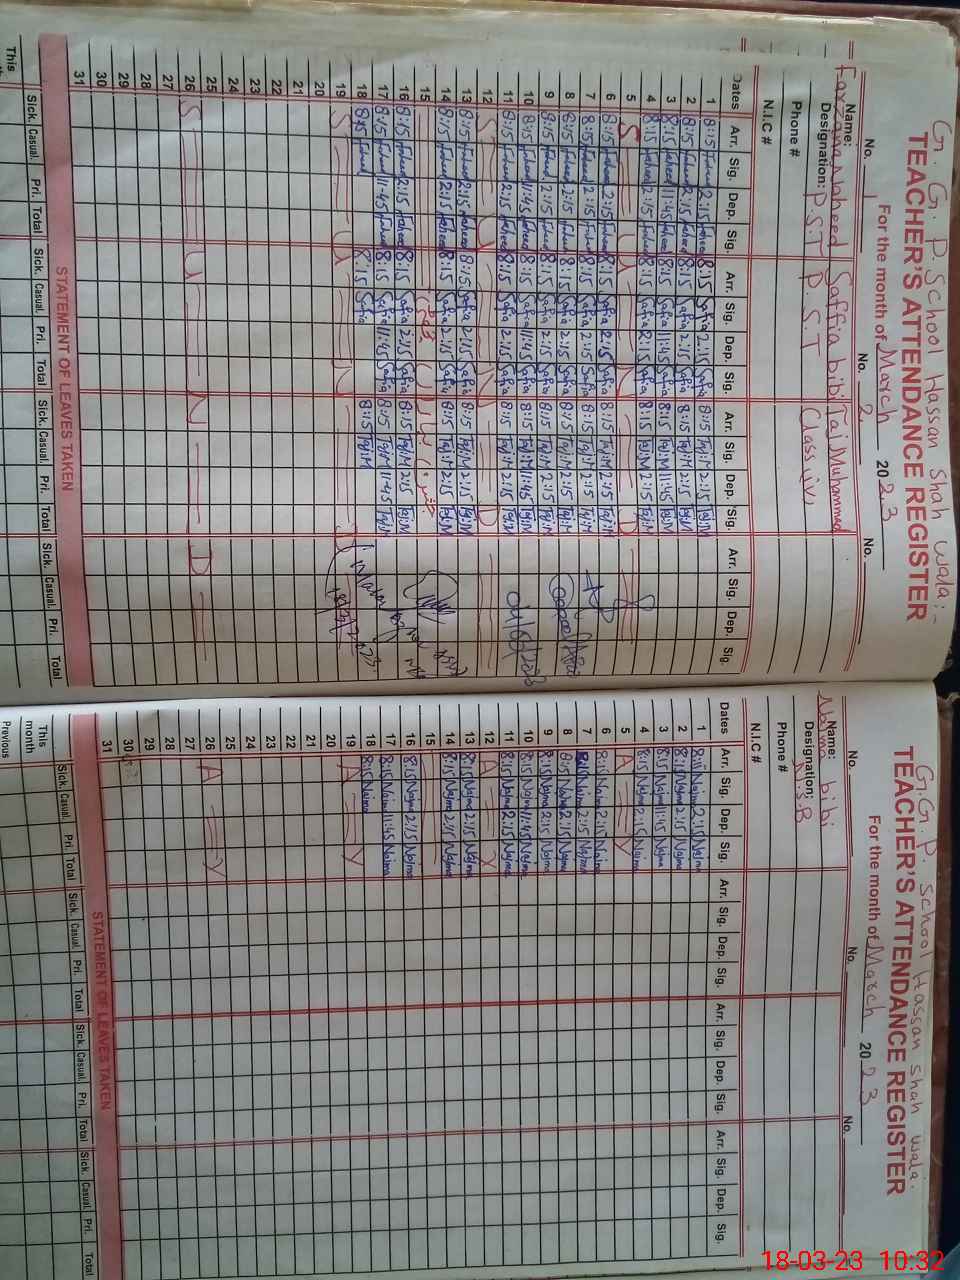 G. G. P. School Hassan Shah wala:-
TEACHER'S ATTENDANCE REGISTER
For the month of March 2023
No. 1 No. 2 No.
Name: Fozzana Naheed Saffia bibi Taj Muhammad
Designation: P.S.T P.S.T Class iv
Phone #
N.I.C #
Dates Arr. Sig. Dep. Sig. Arr. Sig. Dep. Sig. Arr. Sig. Dep. Sig. Arr. Sig. Dep. Sig.
1 8:15 Faheed 2:15 Faheed 8:15 Safia 2:15 Safia 8:15 Taj:M 2:15 Taj:M
2 8:15 Faheed 2:15 Faheed 8:15 Safia 2:15 Safia 8:15 Taj:M 2:15 Taj:M
3 8:15 Faheed 11:45 Faheed 8:15 Safia 11:45 Safia 8:15 Taj:M 11:45 Taj:M
4 8:15 Faheed 2:15 Faheed 8:15 Safia 2:15 Safia 8:15 Taj:M 2:15 Taj:M
5 S U N D
6 8:15 Faheed 2:15 Faheed 8:15 Safia 2:15 Safia 8:15 Taj:M 2:15 Taj:M
7 8:15 Faheed 2:15 Faheed 8:15 Safia 2:15 Safia 8:15 Taj:M 2:15 Taj:M
8 8:15 Faheed 2:15 Faheed 8:15 Safia 2:15 Safia 8:15 Taj:M 2:15 Taj:M
9 8:15 Faheed 2:15 Faheed 8:15 Safia 2:15 Safia 8:15 Taj:M 2:15 Taj:M
10 8:15 Faheed 11:45 Faheed 8:15 Safia 11:45 Safia 8:15 Taj:M 11:45 Taj:M
11 8:15 Faheed 2:15 Faheed 8:15 Safia 2:15 Safia 8:15 Taj:M 2:15 Taj:M
12 S U N D
13 8:15 Faheed 2:15 Faheed 8:15 Safia 2:15 Safia 8:15 Taj:M 2:15 Taj:M
14 8:15 Faheed 2:15 Faheed 8:15 Safia 2:15 Safia 8:15 Taj:M 2:15 Taj:M
15
16 8:15 Faheed 2:15 Faheed 8:15 Safia 2:15 Safia 8:15 Taj:M 2:15 Taj:M
17 8:15 Faheed 11:45 Faheed 8:15 Safia 11:45 Safia 8:15 Taj:M 11:45 Taj:M
18 8:15 Faheed 8:15 Safia 8:15 Taj:M
19 S U N D
20
21
22
23
24
25
26 S U N D
27
28
29
30
31
STATEMENT OF LEAVES TAKEN
Sick. Casual. Pri. Total Sick. Casual. Pri. Total Sick. Casual. Pri. Total Sick. Casual. Pri. Total
This
G.G.P. School Hassan Shah wala.
TEACHER'S ATTENDANCE REGISTER
For the month of March 2023
No. No. No.
Name: Najma bibi
Designation:
Phone #
N.I.C #
Dates Arr. Sig. Dep. Sig. Arr. Sig. Dep. Sig. Arr. Sig. Dep. Sig. Arr. Sig. Dep. Sig.
1 8:15 Najma 2:15 Najma
2 8:15 Najma 2:15 Najma
3 8:15 Najma 11:45 Najma
4 8:15 Najma 2:15 Najma
5 A Y
6 8:15 Najma 2:15 Najma
7 8:15 Najma 2:15 Najma
8 8:15 Najma 2:15 Najma
9 8:15 Najma 2:15 Najma
10 8:15 Najma 11:45 Najma
11 8:15 Najma 2:15 Najma
12 A Y
13 8:15 Najma 2:15 Najma
14 8:15 Najma 2:15 Najma
15
16 8:15 Najma 2:15 Najma
17 8:15 Najma 11:45 Najma
18 8:15 Najma
19 A Y
20
21
22
23
24
25
26 A Y
27
28
29
30
31
STATEMENT OF LEAVES TAKEN
Sick. Casual. Pri. Total Sick. Casual. Pri. Total Sick. Casual. Pri. Total Sick. Casual. Pri. Total
This month
Previous
18-03-23 10:32